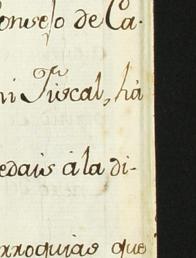 Consejo de Ca-
mi Fiscal, há
edais á la di-
rroquias que